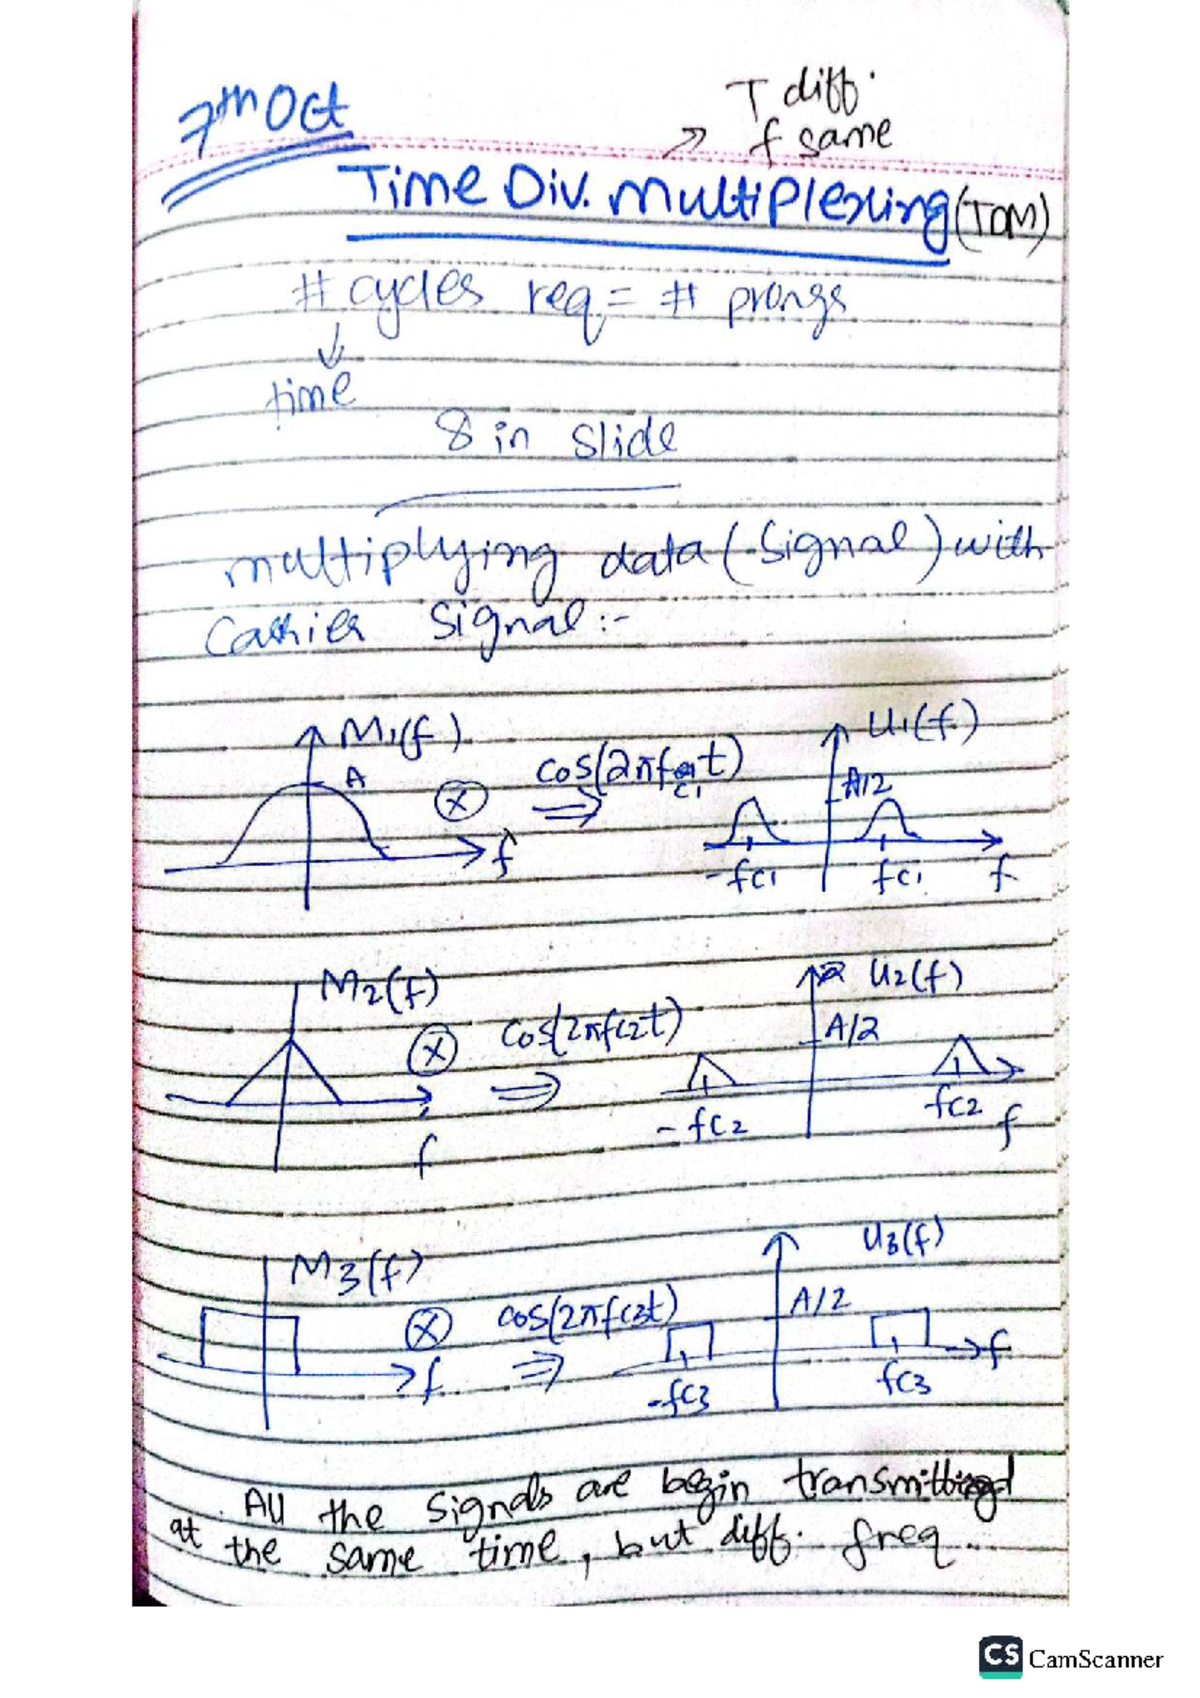 7th Oct
T diff.
→ f same
Time Div. Multiplexing (TDM)
# cycles req = # prongs
↓
time
8 in slide
multiplying data (signal) with
Carrier Signal :-
M1(f)
A
⊗ cos(2πfc1t)
⇒
f
U1(f)
A/2
-fc1 fc1 f
M2(f)
⊗ cos(2πfc2t)
⇒
f
U2(f)
A/2
-fc2 fc2 f
M3(f)
⊗ cos(2πfc3t)
⇒
f
U3(f)
A/2
-fc3 fc3 f
All the signals are begin transmitted
at the same time, but diff. freq...
CS CamScanner